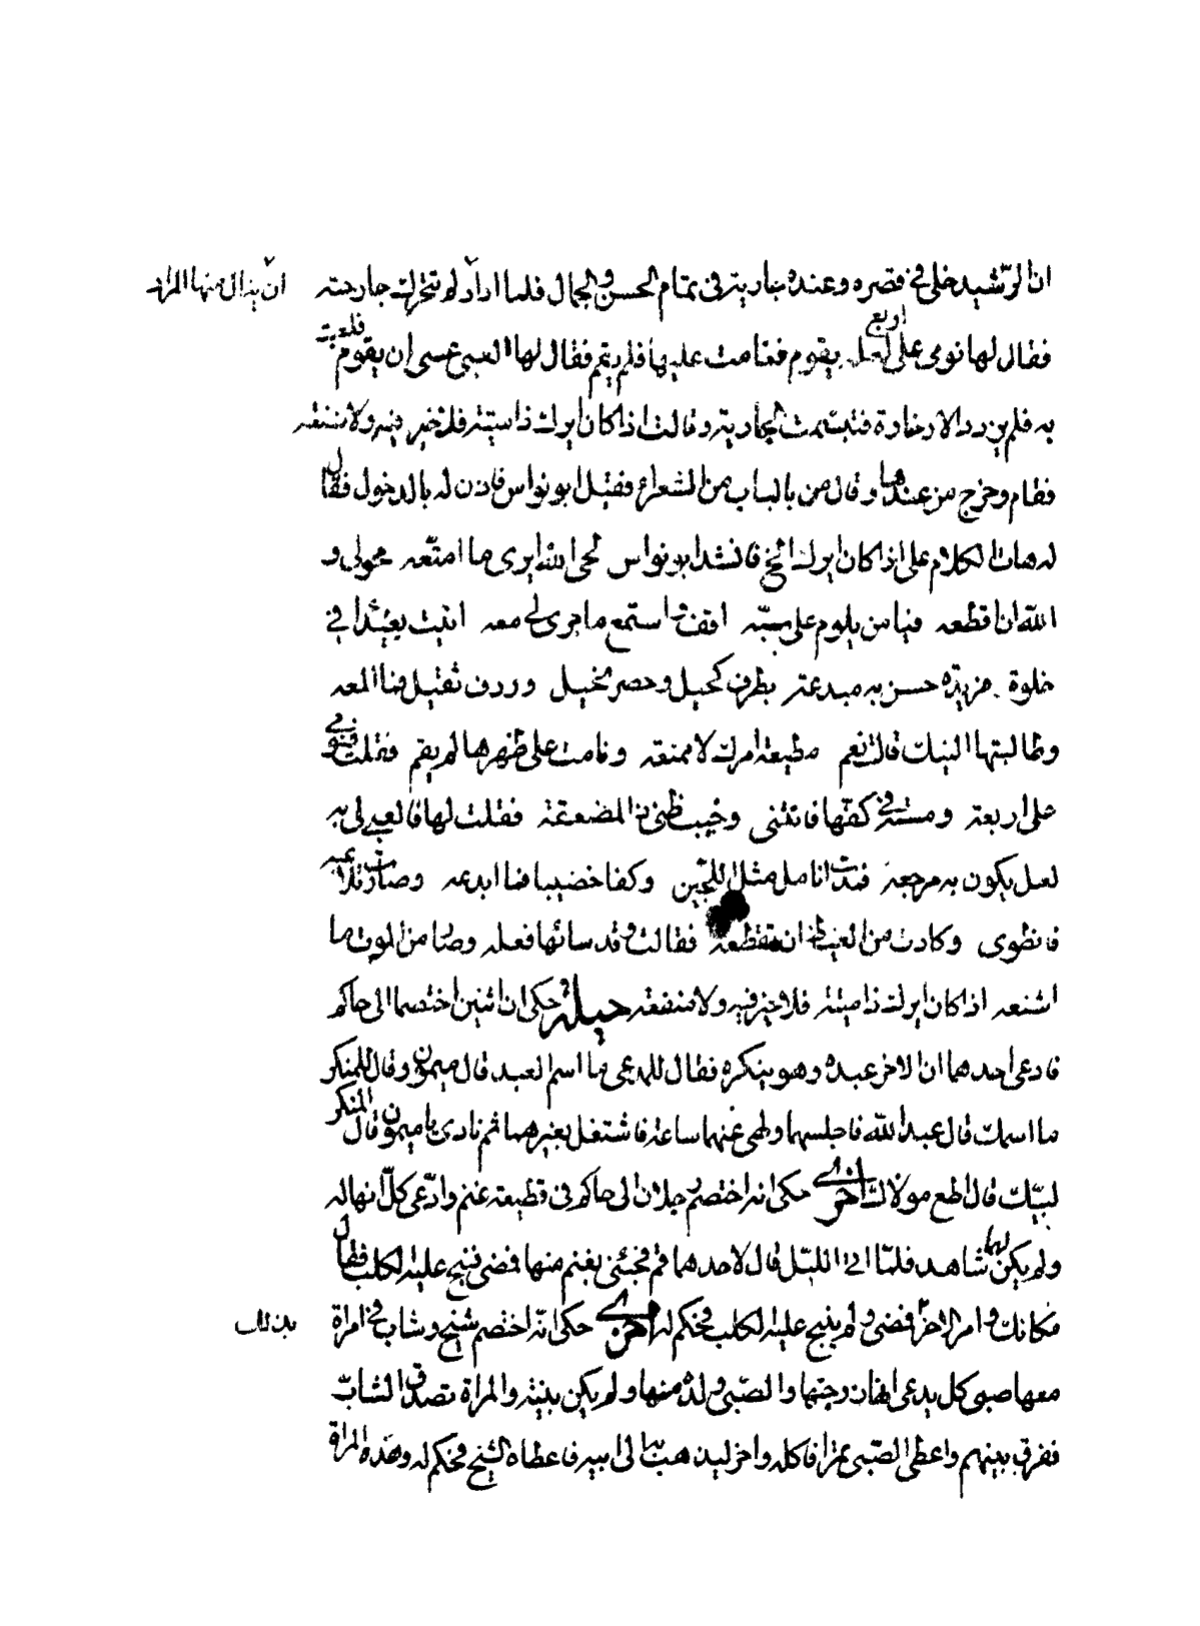 ان الرشيد خلى في قصره وعنده جارية في تمام الحسن والجمال فلما اراد لم تتحرك جارحته ان ينال منها المراد
فقال لها نومي على اربع لعل يقوم فقامت عليها فلم يقم فقال لها العبي عسى ان يقوم فلعبت
به فلم يزدد الا رخاوة فتبسمت الجارية وقالت اذا كان ايرك ذا ميتة فلا خير فيه ولا منفعه
فقام وخرج من عندها وقال من بالباب من الشعراء فقيل ابو نواس فاذن له بالدخول فقال
له هات الكلام على اذا كان ايرك الخ فانشد ابو نواس لحى الله ايري ما امتعه مولى و
الله ان اقطعه فيا من يلوم على سبه افق واستمع ما جرى لي معه اتيت بغيداء في
خلوة مزيدة حسن به مبدعه بطرف كحيل وخصر نحيل وردف ثقيل فما المعه
وطالبتها النيك قالت نعم مطيعة امرك لا ممنعه ونامت على ظهرها لم يقم فقلت فنومي
على اربعة ومسته في كفها فانثنى وخيب ظني في المضعفة فقلت لها فالعبي لي به
لعل يكون به مرجعه فمدت انامل مثل اللجين وكفا خضيبا فما ابدعه وصارت تلاعبه
فانطوى وكادت من الغيظ ان تقطعه فقالت وقد سائها فعله وصار من الموت ما
اشنعه اذا كان ايرك ذا ميتة فلا خير فيه ولا منفعه حيلة وحكى ان اثنين اختصما الى حاكم
فادعى احدهما ان الاخر عبده وهو ينكره فقال للمدعي ما اسم العبد قال ميمون وقال للمنكر
ما اسمك قال عبد الله فاجلسهما ولهى عنهما ساعة فاشتغل بغيرهما ثم نادى يا ميمون قال المنكر
لبيك قال اطع مولاك اخرى حكى انه اختصم رجلان الى حاكم في قطيعة غنم وادعى كل انها له
ولم يكن لهما شاهد فلما اتى الليل قال لاحدهما قم فجئني بغنم منها فمضى فنبح عليه الكلب فقال
مكانك وامر الاخر فمضى ولم ينبح عليه الكلب فحكم له اخرى حكى انه اختصم شيخ وشاب في امراة
معها صبي كل يدعي انها زوجتها والصبي ولده منها ولم يكن بينة والمراة تصدق الشاب
ففرق بينهم واعطى الصبي تمرا فاكله واخر ليذهب بها الى ابيه فاعطاه الشيخ فحكم له وهذه المراة